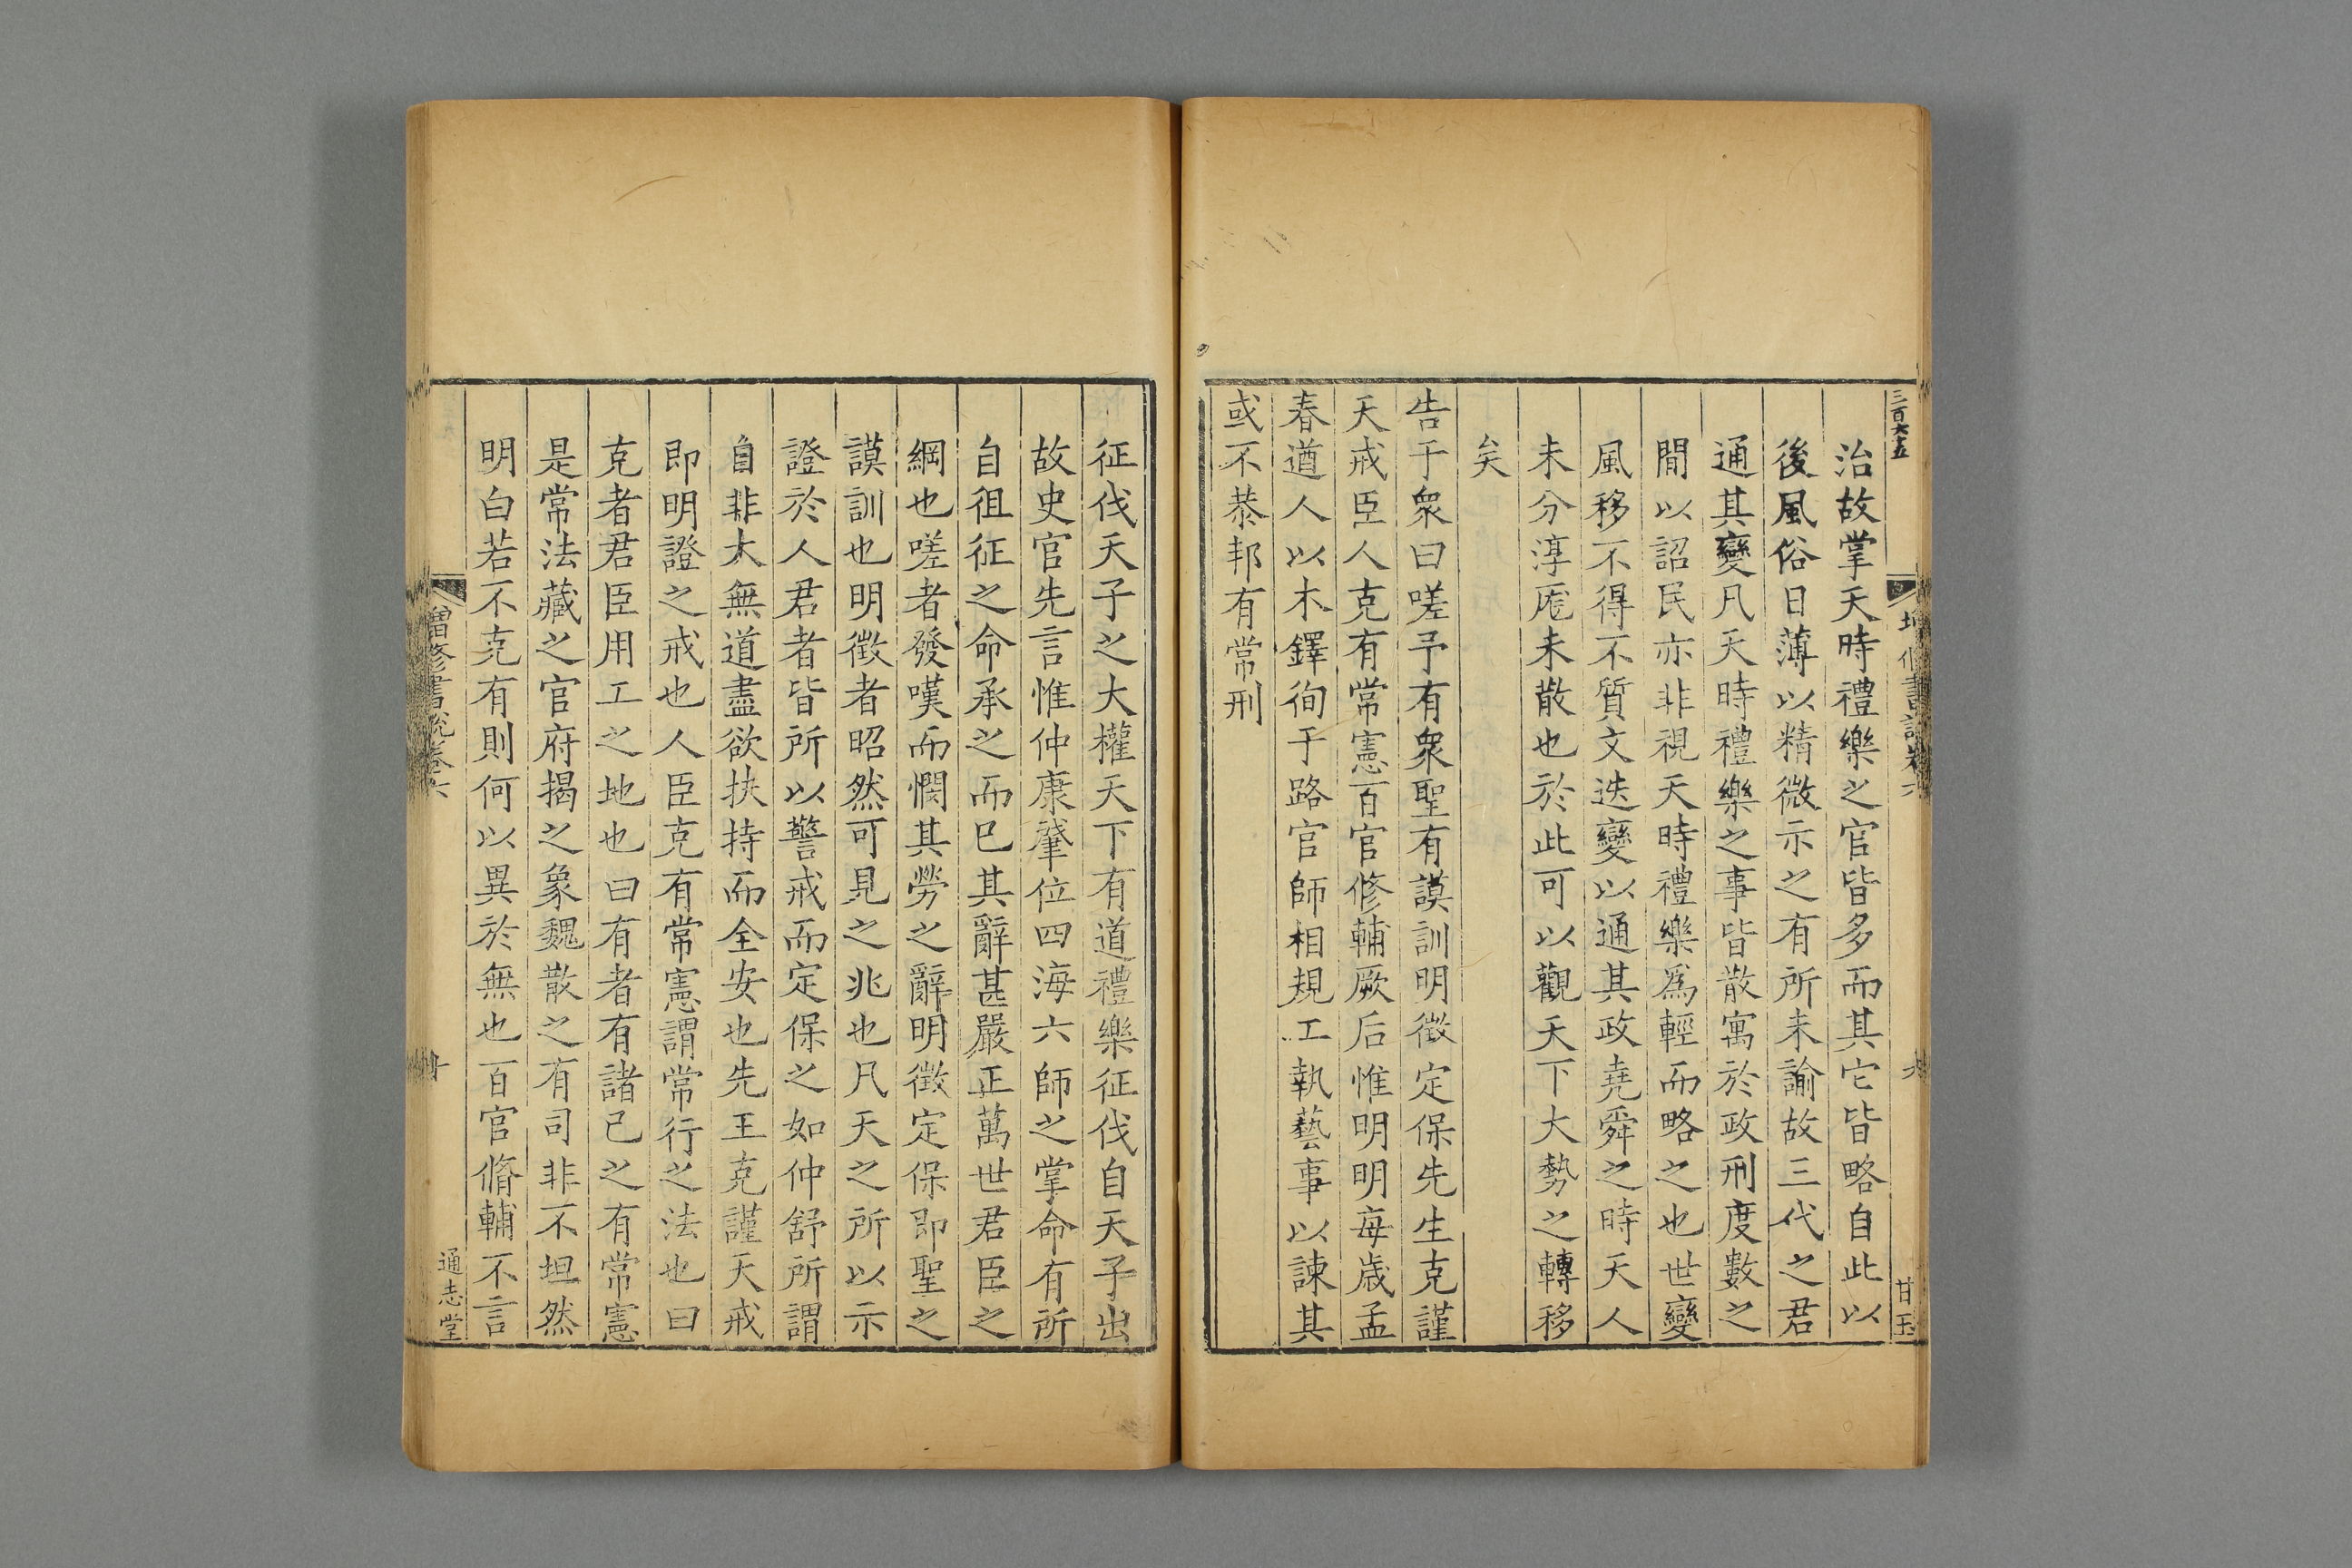 三百六十五
治故掌天時禮樂之官皆多而其它皆略自此以
後風俗日薄以精微示之有所未諭故三代之君
通其變凡天時禮樂之事皆散寓於政刑度數之
間以詔民亦非視天時禮樂爲輕而略之也世變
風移不得不質文迭變以通其政堯舜之時天人
未分淳厖未散也於此可以觀天下大勢之轉移
矣
告于衆曰嗟予有衆聖有謨訓明徵定保先生克謹
天戒臣人克有常憲百官修輔厥后惟明明每歲孟
春遒人以木鐸徇于路官師相規工執藝事以諫其
或不恭邦有常刑
甘玉
征伐天子之大權天下有道禮樂征伐自天子出
故史官先言惟仲康肇位四海六師之掌命有所
自徂征之命承之而已其辭甚嚴正萬世君臣之
綱也嗟者發嘆而憫其勞之辭明徵定保即聖之
謨訓也明徵者昭然可見之兆也凡天之所以示
證於人君者皆所以警戒而定保之如仲舒所謂
自非大無道盡欲扶持而全安也先王克謹天戒
即明證之戒也人臣克有常憲謂常行之法也曰
克者君臣用工之地也曰有者有諸己之有常憲
是常法藏之官府揭之象魏散之有司非不坦然
明白若不克有則何以異於無也百官脩輔不言
增修書說卷六
通志堂